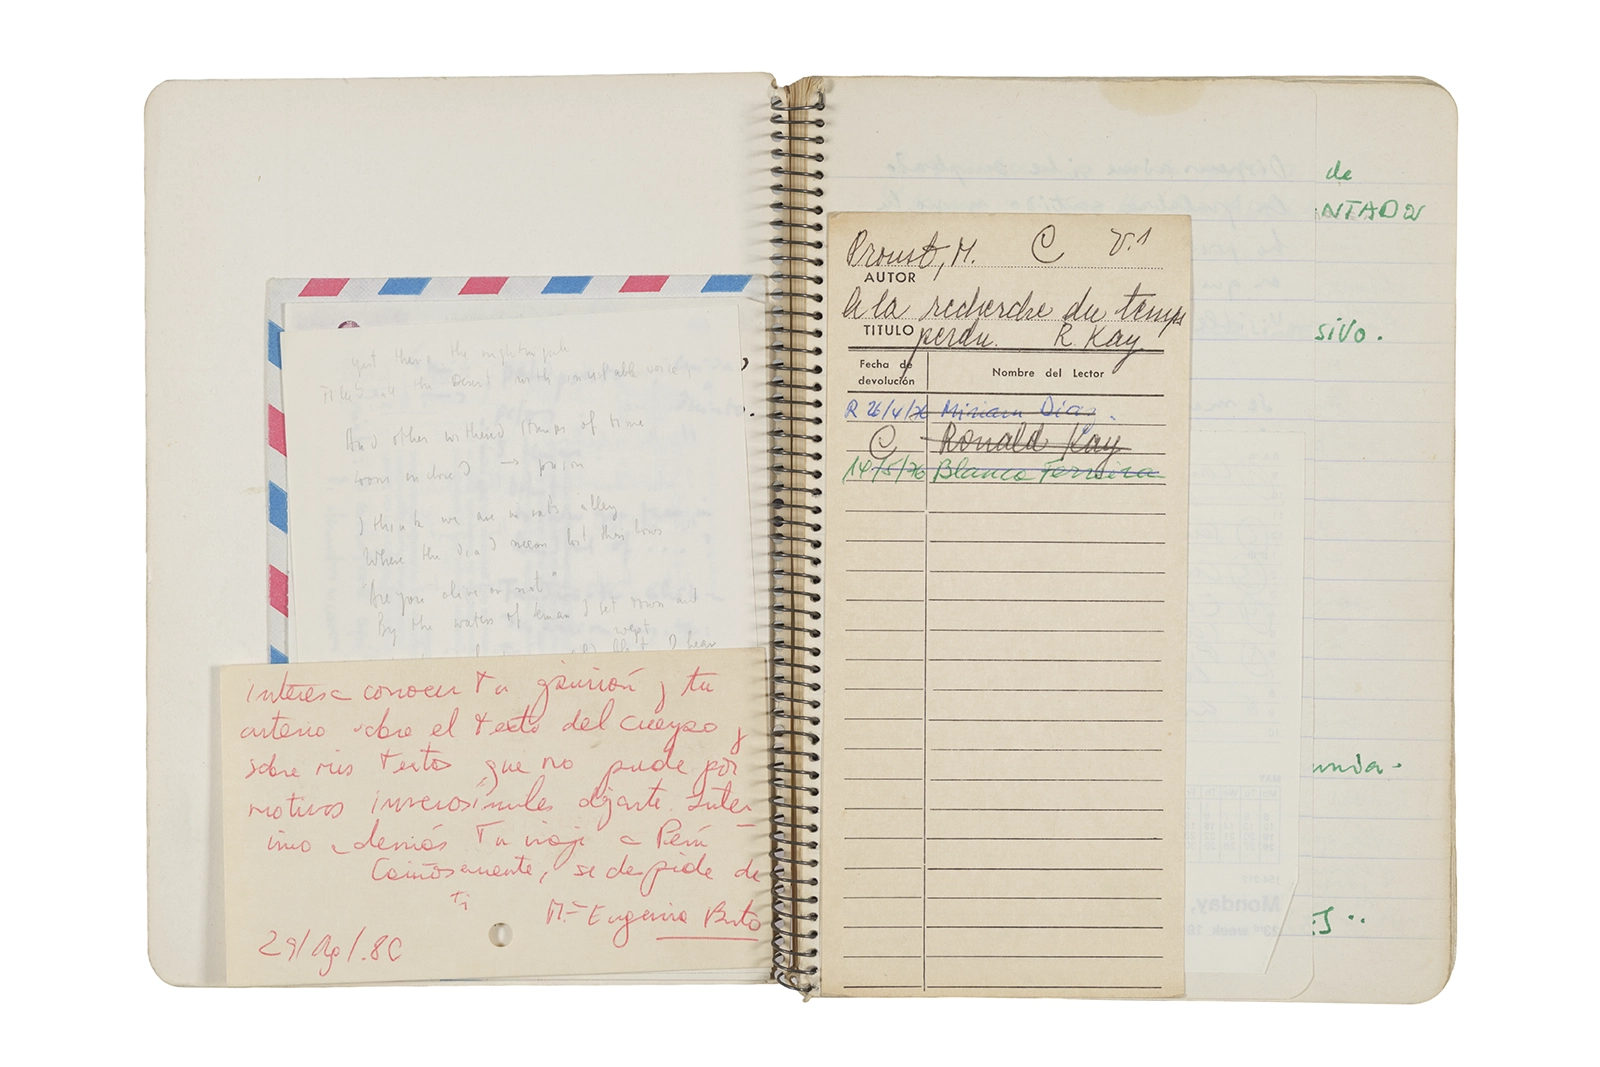 yet there the nightingale
Filled all the desert with inviolable voice
And other withered stumps of time
room enclosed → prison
I think we are in rats' alley
Where the dead men lost their bones
"Are you alive or not"
By the waters of Leman I sat down and
wept
I hear
interesa conocer tu opinión y tu
criterio sobre el texto del cuerpo y
sobre mis textos que no pude por
motivos inverosímiles dejarte. Inter-
imo además tu viaje a Perú
Cariñosamente, se despide de
ti
Mª Eugenia Brito
29/Ago/.80
Proust, M. C V.1
AUTOR
A la recherche du temps
TITULO perdu. R. Kay
Fecha de devolución
Nombre del Lector
R 26/4/76 Miriam Díaz.
C Ronald Kay
14/5/76 Blanca Ferreira
de
NTADOR
sivo.
unda.
ES..
MAY
Monday,
33rd week